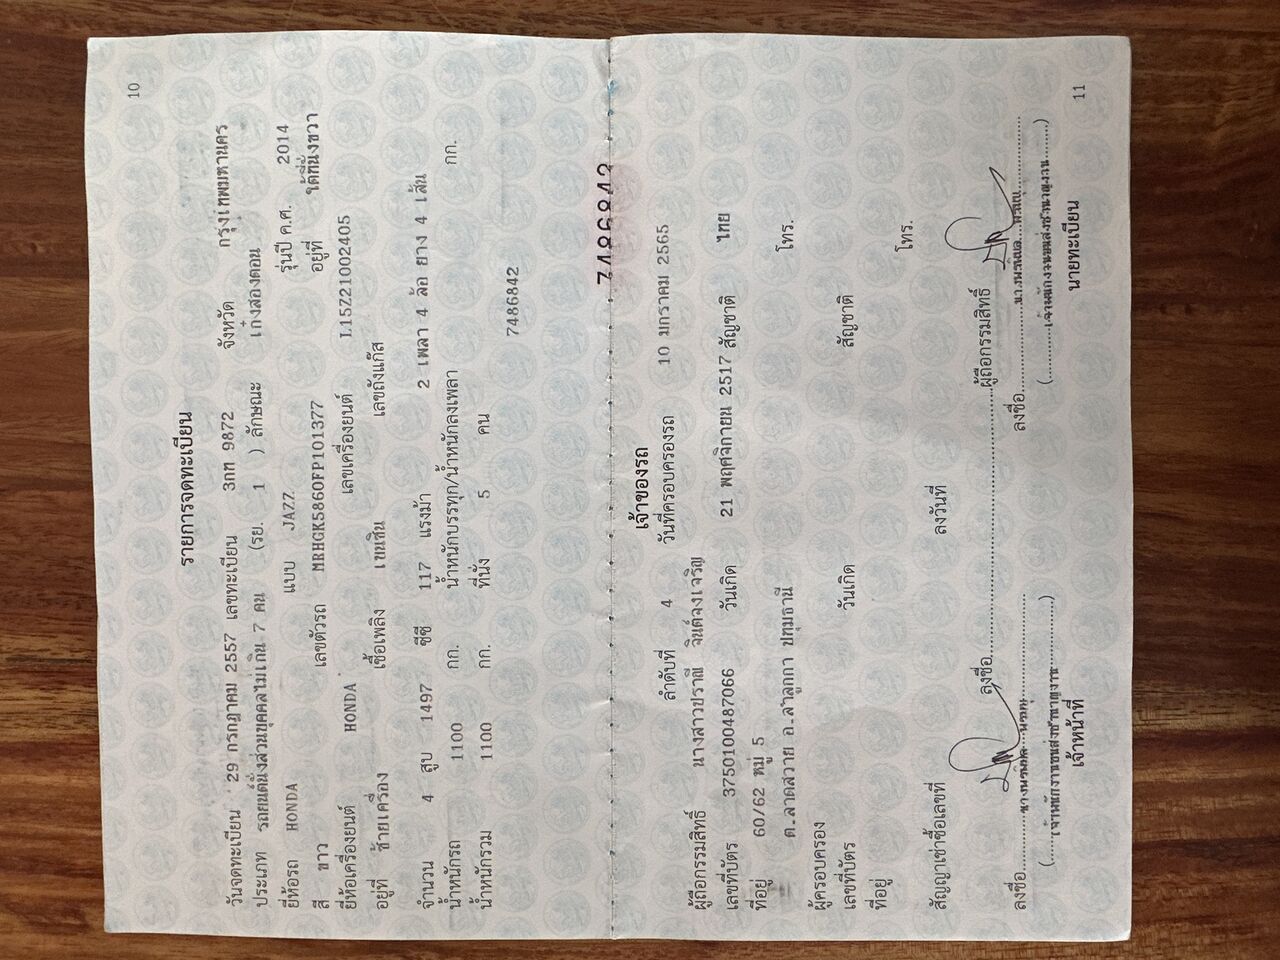 10
รายการจดทะเบียน
วันจดทะเบียน 29 กรกฎาคม 2557 เลขทะเบียน 3กท 9872 จังหวัด กรุงเทพมหานคร
ประเภท รถยนต์นั่งส่วนบุคคลไม่เกิน 7 คน (รย. 1 ) ลักษณะ เก๋งสองตอน
ยี่ห้อรถ HONDA แบบ JAZZ รุ่นปี ค.ศ. 2014
สี ขาว เลขตัวรถ MRHGK5860FP101377 อยู่ที่ ใต้ที่นั่งขวา
ยี่ห้อเครื่องยนต์ HONDA เลขเครื่องยนต์ L15Z21002405
อยู่ที่ ซ้ายเครื่อง เชื้อเพลิง เบนซิน เลขถังแก๊ส
จำนวน 4 สูบ 1497 ซีซี 117 แรงม้า 2 เพลา 4 ล้อ ยาง 4 เส้น
น้ำหนักรถ 1100 กก. น้ำหนักบรรทุก/น้ำหนักลงเพลา กก.
น้ำหนักรวม 1100 กก. ที่นั่ง 5 คน
7486842
7486842
เจ้าของรถ
ลำดับที่ 4 วันที่ครอบครองรถ 10 มกราคม 2565
ผู้ถือกรรมสิทธิ์ นางสาวปราณี จินต์จงเจริญ
เลขที่บัตร 3750100487066 วันเกิด 21 พฤศจิกายน 2517 สัญชาติ ไทย
ที่อยู่ 60/62 หมู่ 5
ต.ลาดสวาย อ.ลำลูกกา ปทุมธานี โทร.
ผู้ครอบครอง
เลขที่บัตร วันเกิด สัญชาติ
ที่อยู่ โทร.
สัญญาเช่าซื้อเลขที่ ลงวันที่
ลงชื่อ ผู้ถือกรรมสิทธิ์
ลงชื่อ ลงชื่อ
(เจ้าพนักงานขนส่งชำนาญงาน) (เจ้าพนักงานขนส่งชำนาญงาน)
เจ้าหน้าที่ นายทะเบียน
11